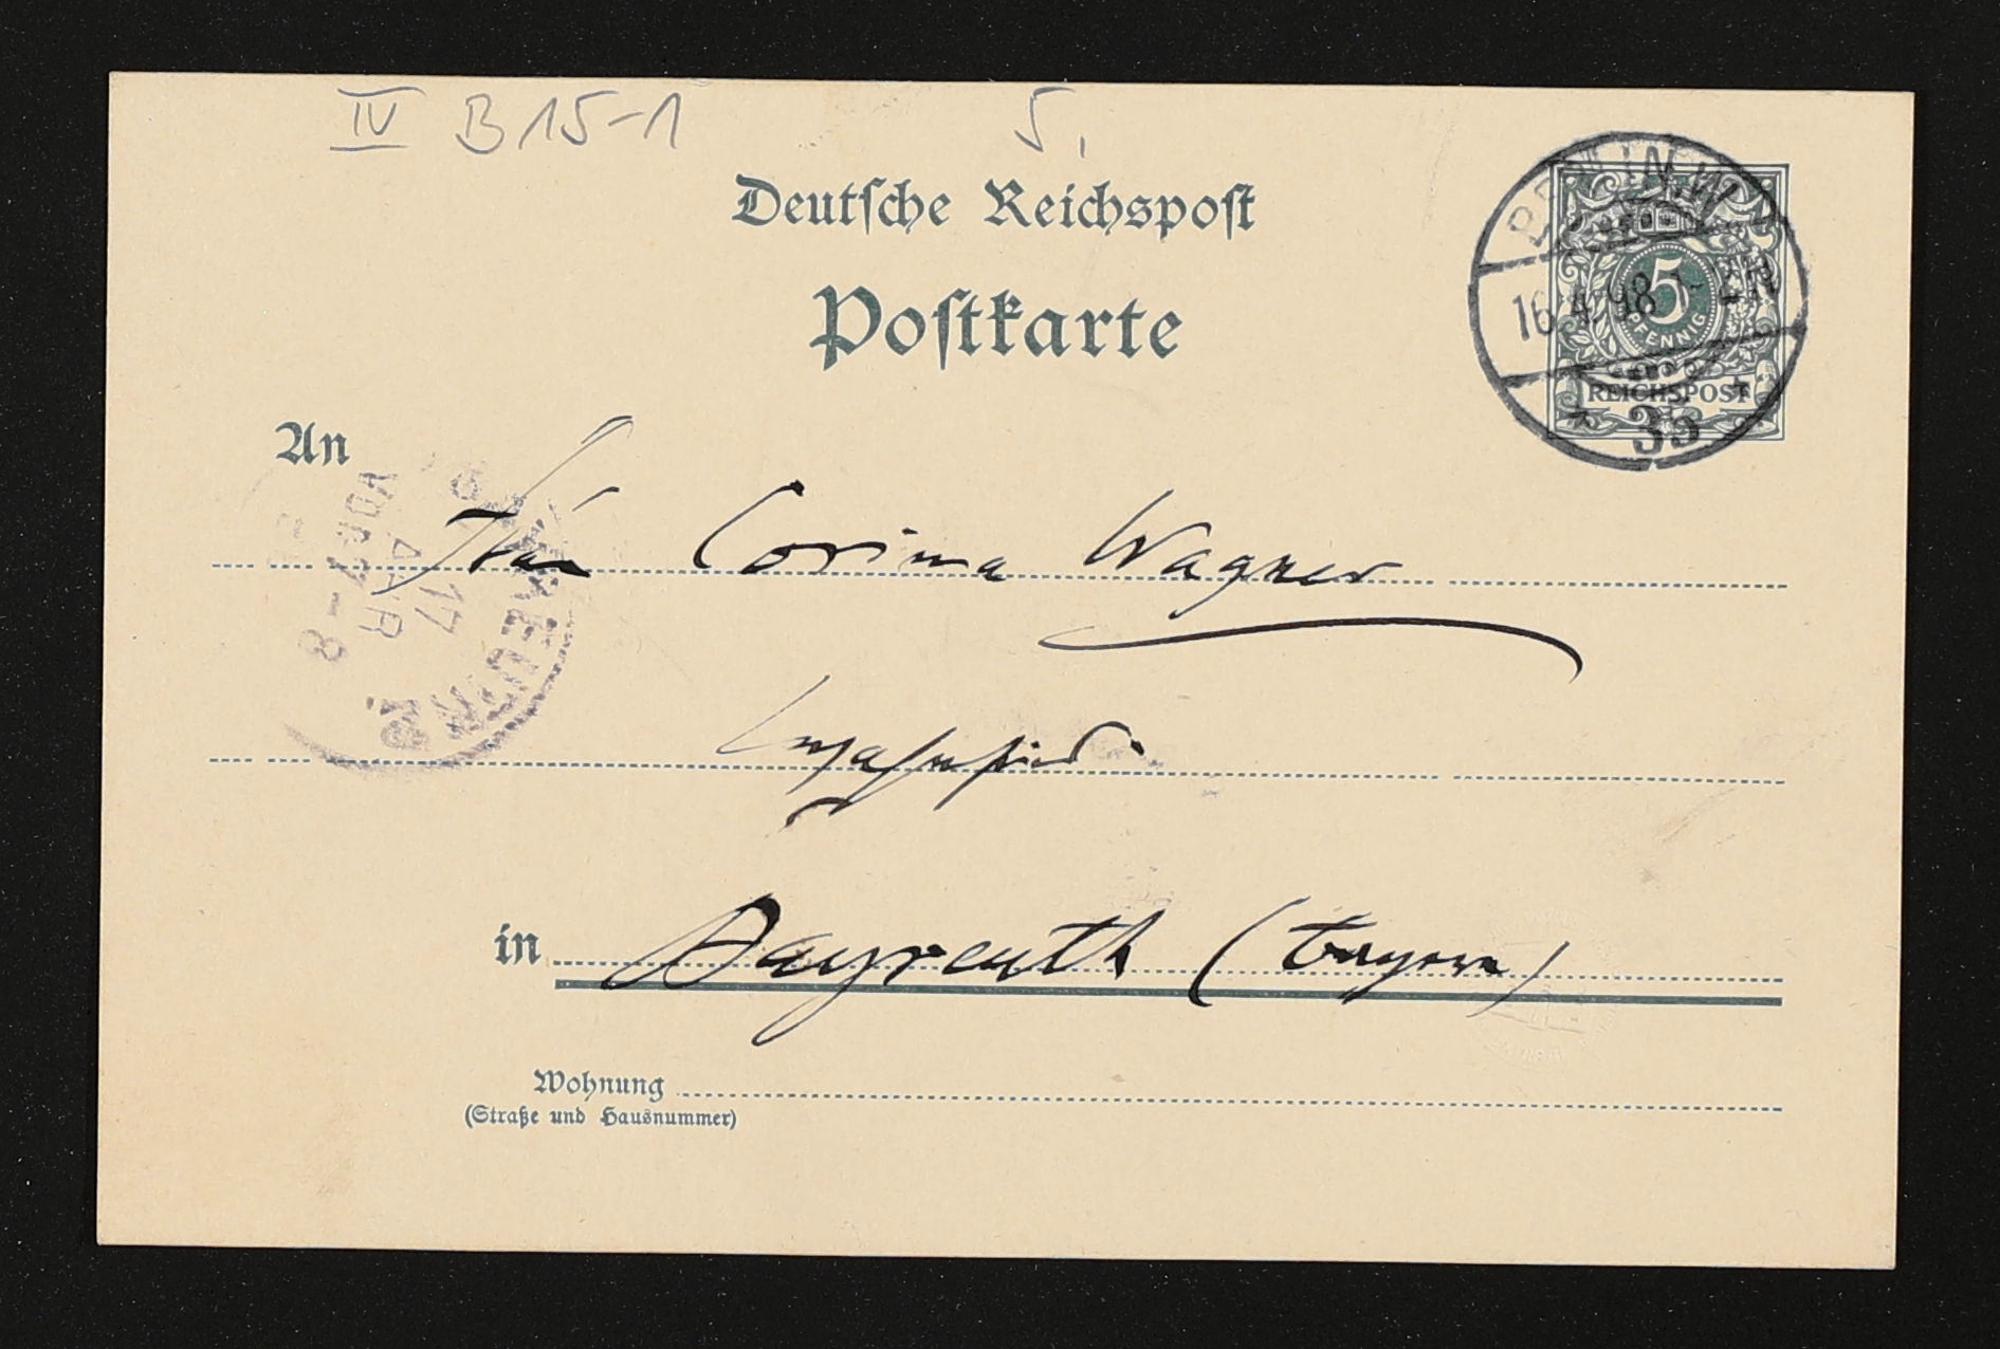 IV B 15-1 5.
Deutsche Reichspost
Postkarte
BERLIN.W.
16.4.98
35
5
PFENNIG
REICHSPOST
An
Frau Cosima Wagner
17
APR
VORM
7-8
in Bayreuth (Bayern)
Wohnung
(Straße und Hausnummer)